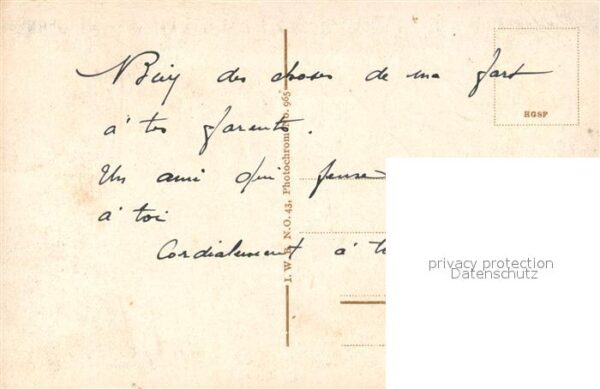 Bien des choses de ma part
à tes parents.
Un ami qui pense
à toi
Cordialement à t
HGSP
N.O. 43, Photochrom No. 965
privacy protection
Datenschutz